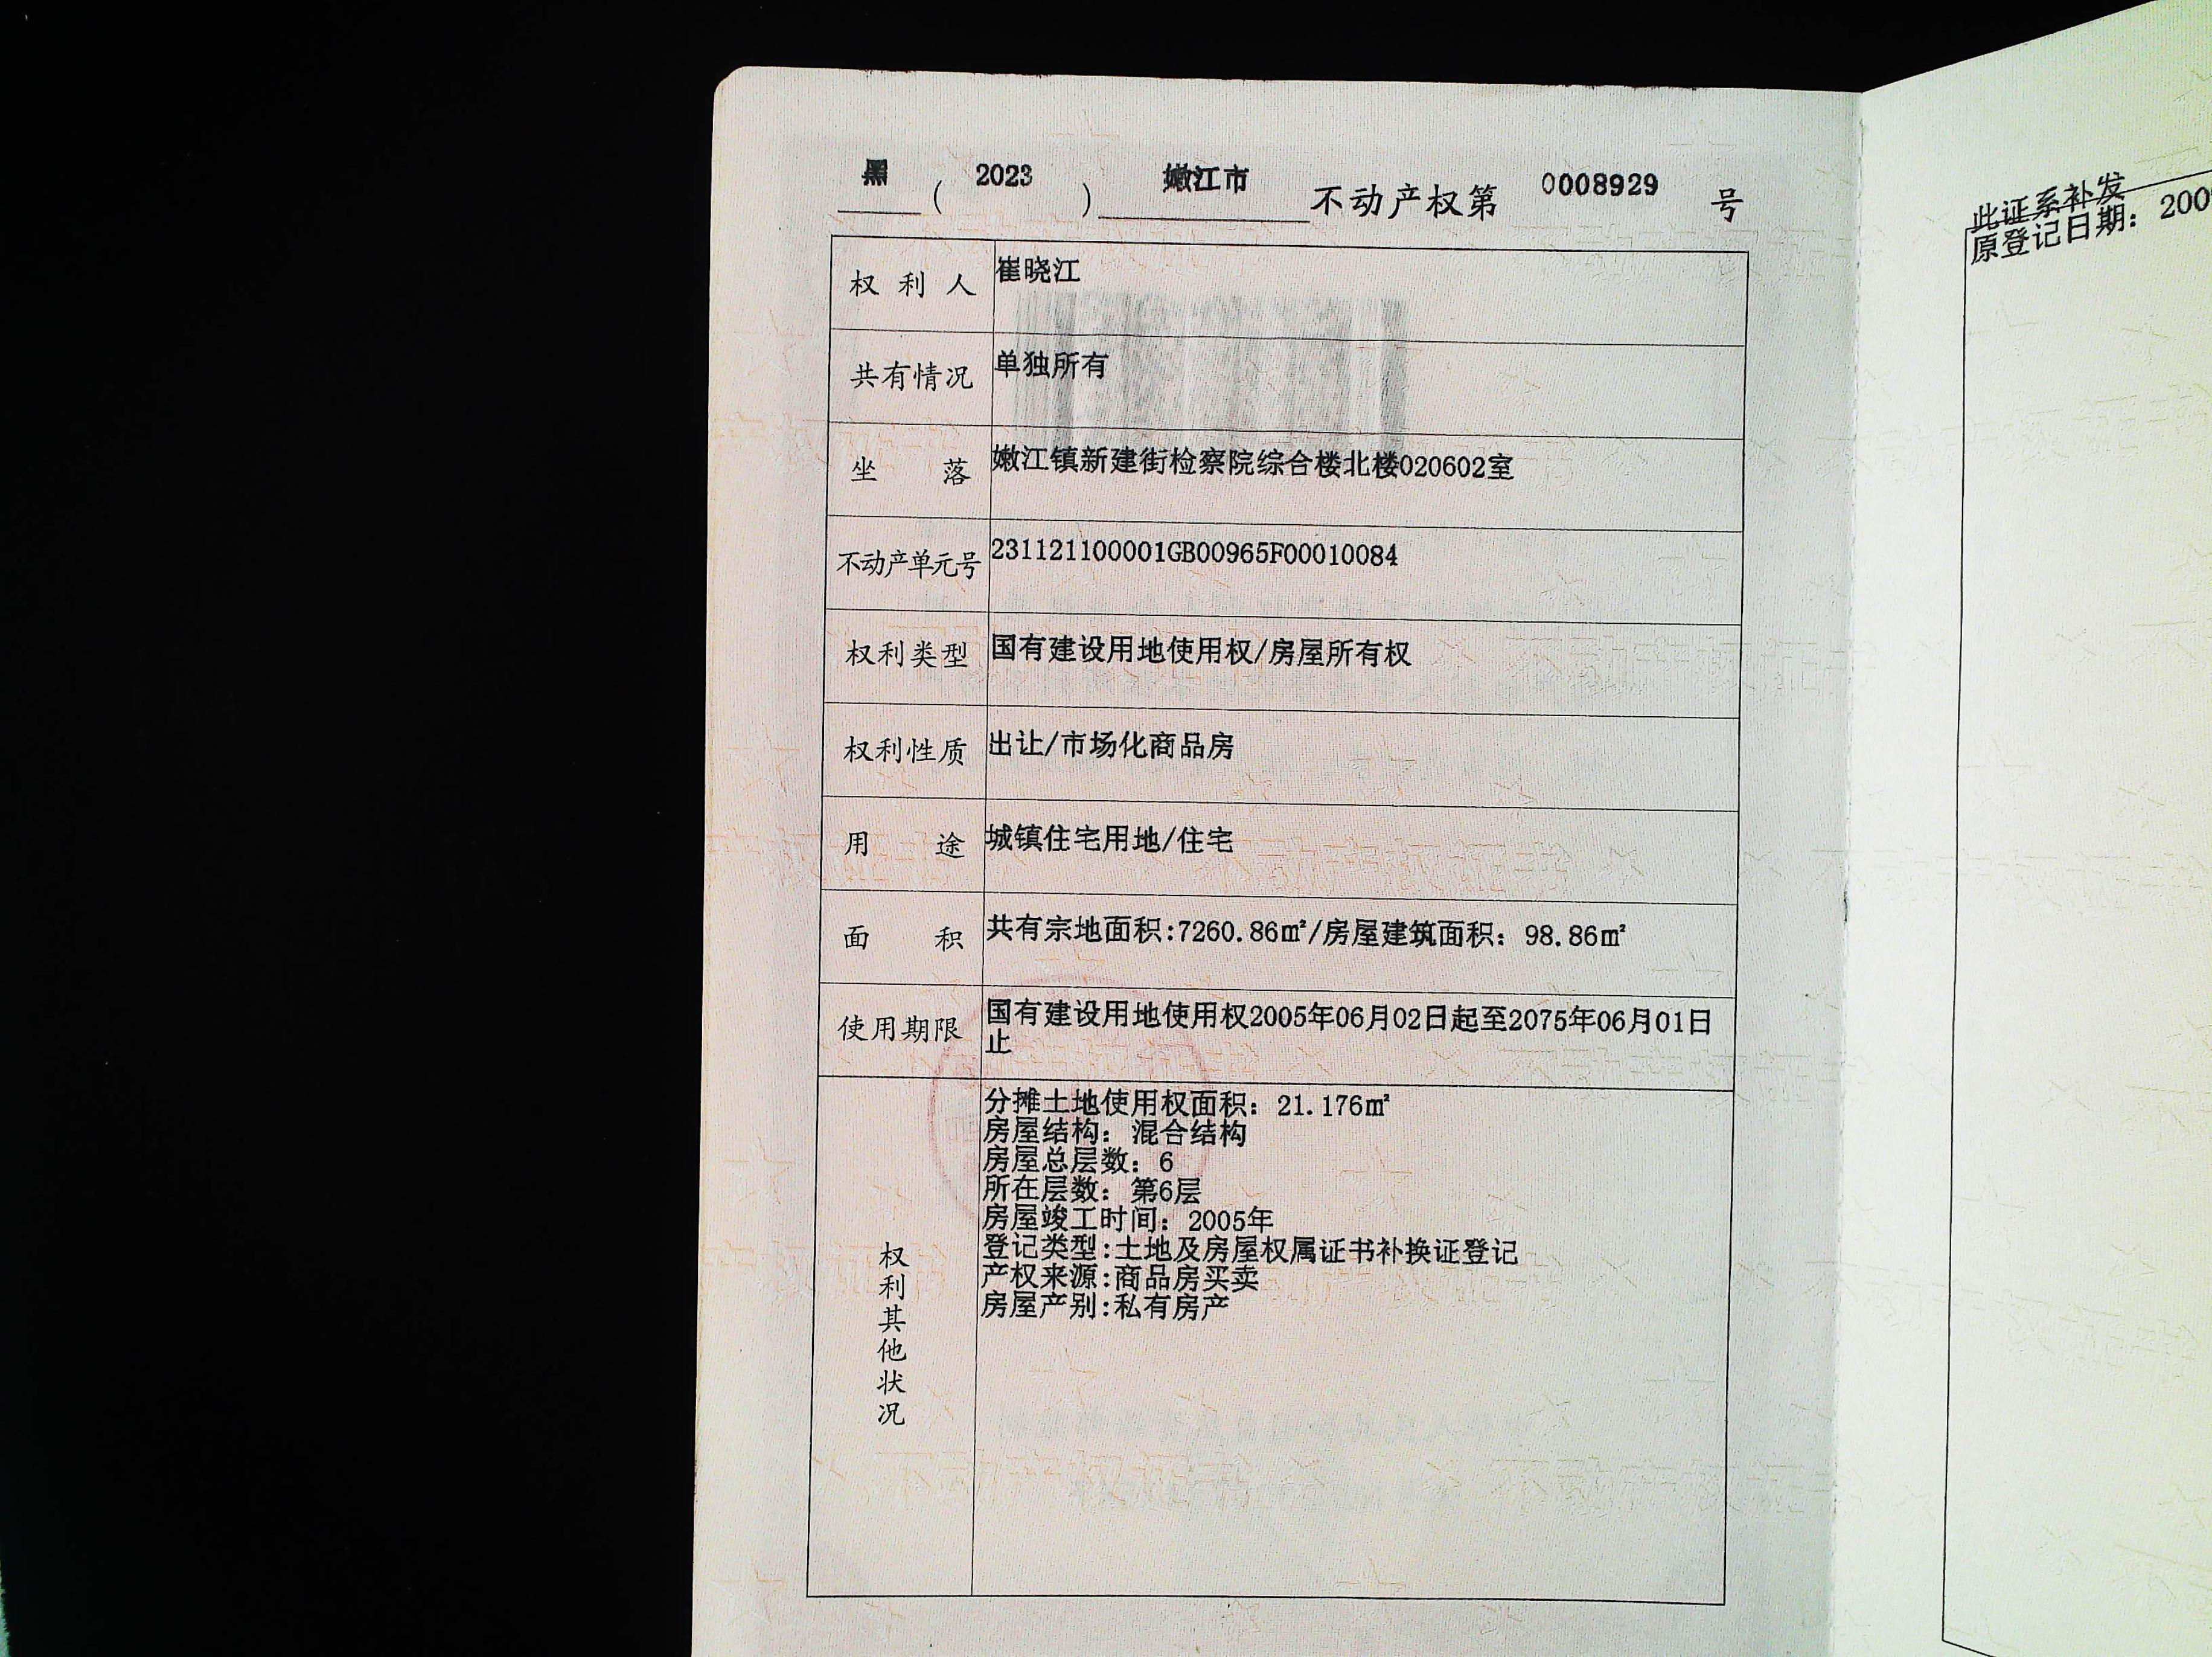 黑 ( 2023 ) 嫩江市 不动产权第 0008929 号
权利人 崔晓江
共有情况 单独所有
坐落 嫩江镇新建街检察院综合楼北楼020602室
不动产单元号 231121100001GB00965F00010084
权利类型 国有建设用地使用权/房屋所有权
权利性质 出让/市场化商品房
用途 城镇住宅用地/住宅
面积 共有宗地面积:7260.86㎡/房屋建筑面积：98.86㎡
使用期限 国有建设用地使用权2005年06月02日起至2075年06月01日
止
权利其他状况
分摊土地使用权面积：21.176㎡
房屋结构：混合结构
房屋总层数：6
所在层数：第6层
房屋竣工时间：2005年
登记类型:土地及房屋权属证书补换证登记
产权来源:商品房买卖
房屋产别:私有房产
此证系补发
原登记日期：200